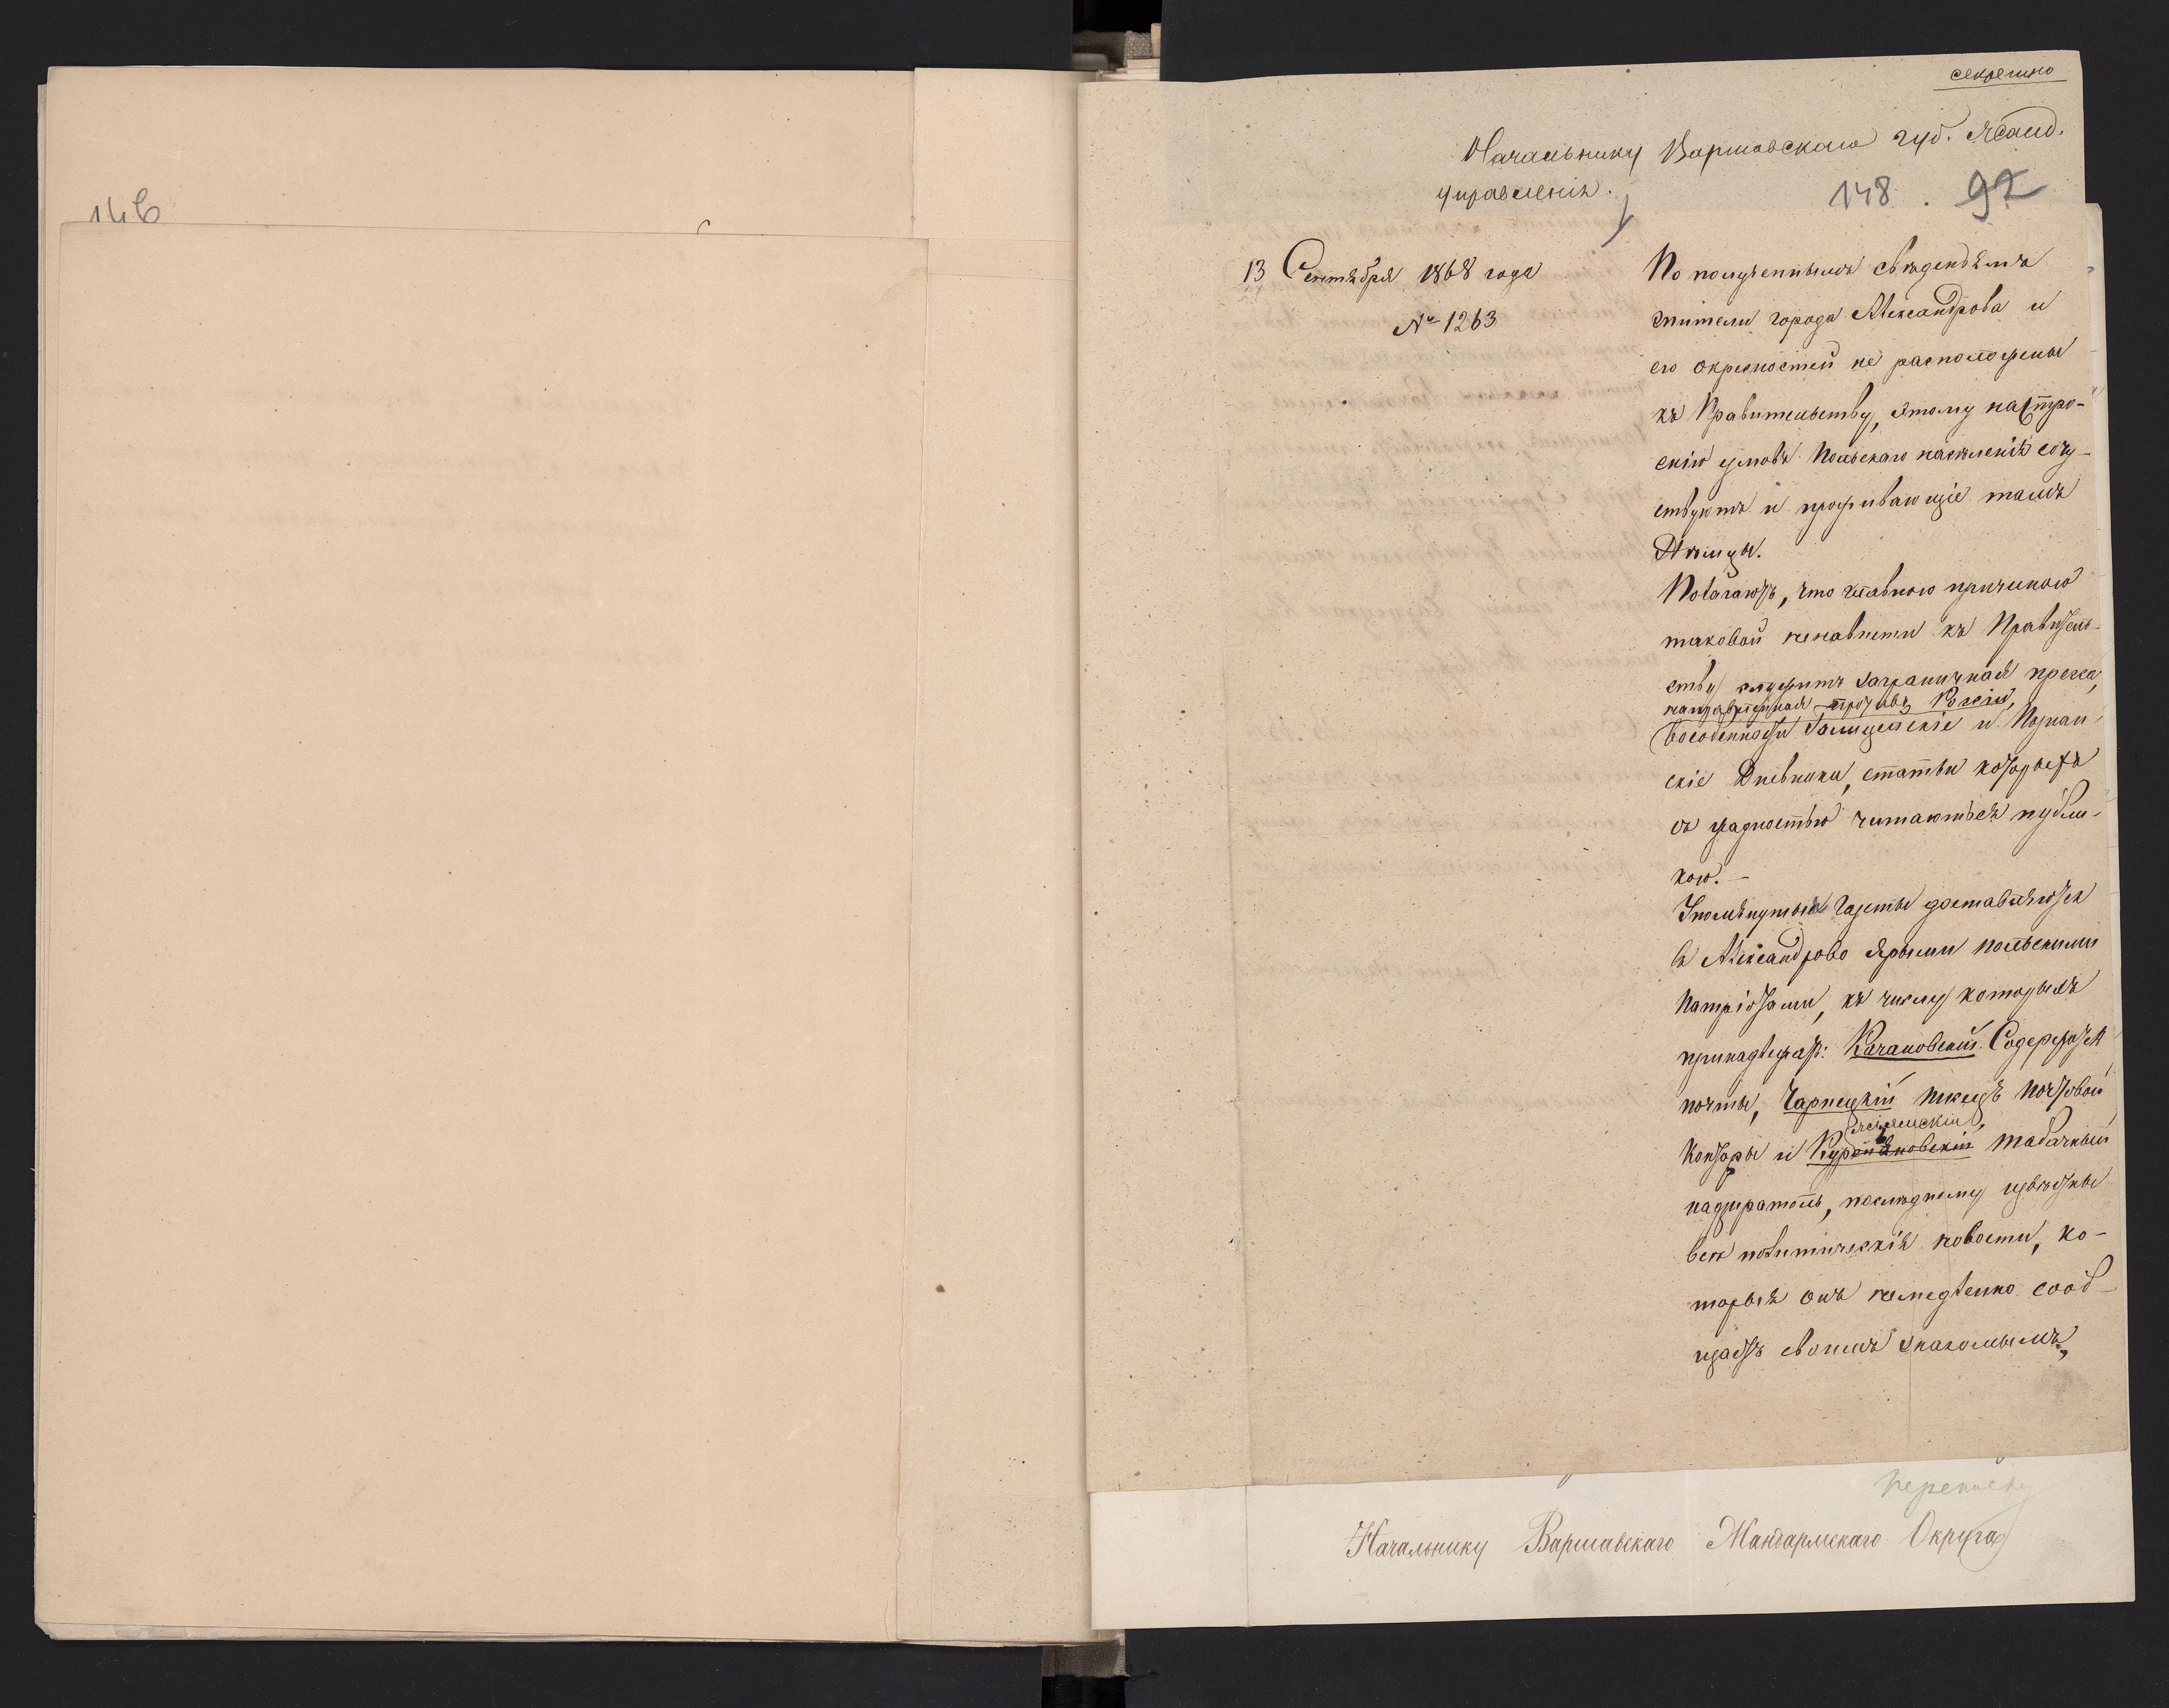 146
секретно
Начальнику Варшавскаго губ. Жанд.
управленія.
148. 92
13 Сентября 1868 года
№ 1263
По полученнымъ свѣденіямъ
жители города Александрова и
его окрестностей не расположены
къ Правительству, этому настро-
енію умовъ Польскаго населенія сочу-
ствуютъ и проживающіе тамъ
Нѣмцы.
Полагаютъ, что главною причиною
таковой ненависти къ Правитель-
ству служитъ заграничная пресса,
направленная противъ Россіи,
(вособенности Галиційскіе и Познан-
скіе Дневники, статьи которыхъ
съ жадностью читаються публи-
кою. –
Упомянутыя газеты доставляются
въ Александрово ярыми польскими
патріотами, къ числу которыхъ
принадлежатъ: Качановскій Содержатель
почты, Чарнецкій Почтовой
Конторы и Табачный
надзиратель, послѣдному извѣстны
всѣ политическія новости, ко-
торыя онъ немедленно сооб-
щаетъ своимъ знакомымъ,
переписку
Начальнику Варшавскаго Жандармскаго Округа